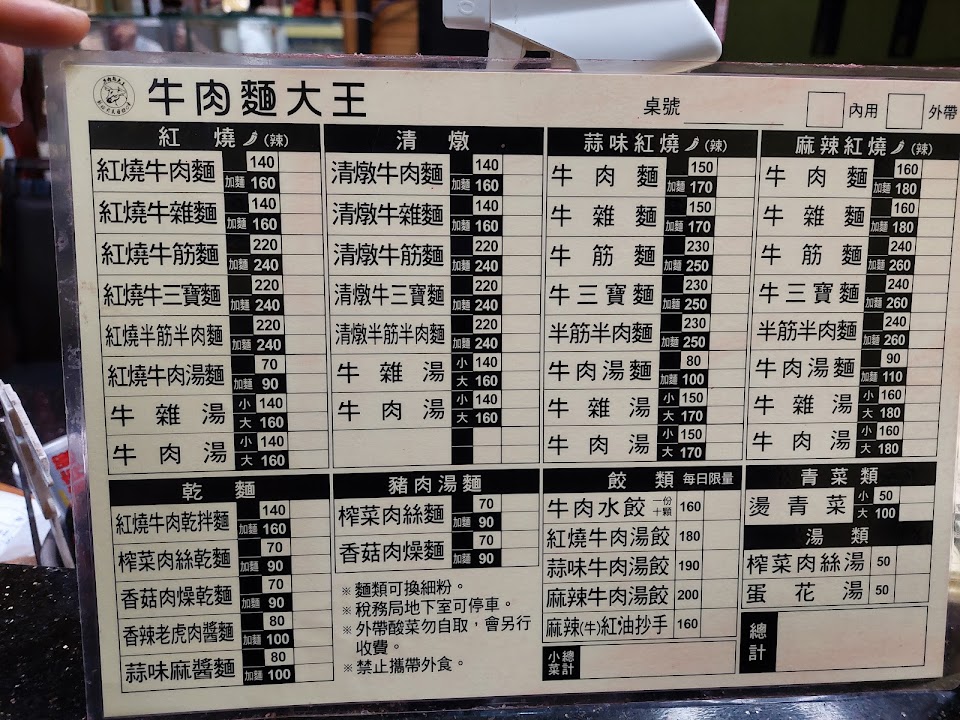 牛肉麵大王
桌號 內用 外帶
紅燒(辣)
紅燒牛肉麵 140 加麵 160
紅燒牛雜麵 140 加麵 160
紅燒牛筋麵 220 加麵 240
紅燒牛三寶麵 220 加麵 240
紅燒半筋半肉麵 220 加麵 240
紅燒牛肉湯麵 70 加麵 90
牛雜湯 小 140 大 160
牛肉湯 小 140 大 160
清燉
清燉牛肉麵 140 加麵 160
清燉牛雜麵 140 加麵 160
清燉牛筋麵 220 加麵 240
清燉牛三寶麵 220 加麵 240
清燉半筋半肉麵 220 加麵 240
牛雜湯 小 140 大 160
牛肉湯 小 140 大 160
蒜味紅燒(辣)
牛肉麵 150 加麵 170
牛雜麵 150 加麵 170
牛筋麵 230 加麵 250
牛三寶麵 230 加麵 250
半筋半肉麵 230 加麵 250
牛肉湯麵 80 加麵 100
牛雜湯 小 150 大 170
牛肉湯 小 150 大 170
麻辣紅燒(辣)
牛肉麵 160 加麵 180
牛雜麵 160 加麵 180
牛筋麵 240 加麵 260
牛三寶麵 240 加麵 260
半筋半肉麵 240 加麵 260
牛肉湯麵 90 加麵 110
牛雜湯 小 160 大 180
牛肉湯 小 160 大 180
乾麵
紅燒牛肉乾拌麵 140 加麵 160
榨菜肉絲乾麵 70 加麵 90
香菇肉燥乾麵 70 加麵 90
香辣老虎肉醬麵 80 加麵 100
蒜味麻醬麵 80 加麵 100
豬肉湯麵
榨菜肉絲麵 70 加麵 90
香菇肉燥麵 70 加麵 90
※麵類可換細粉。
※稅務局地下室可停車。
※外帶酸菜勿自取,會另行
收費。
※禁止攜帶外食。
餃類 每日限量
牛肉水餃 一份十顆 160
紅燒牛肉湯餃 180
蒜味牛肉湯餃 190
麻辣牛肉湯餃 200
麻辣(牛)紅油抄手 160
小菜總計
青菜類
燙青菜 小 50 大 100
湯類
榨菜肉絲湯 50
蛋花湯 50
總計